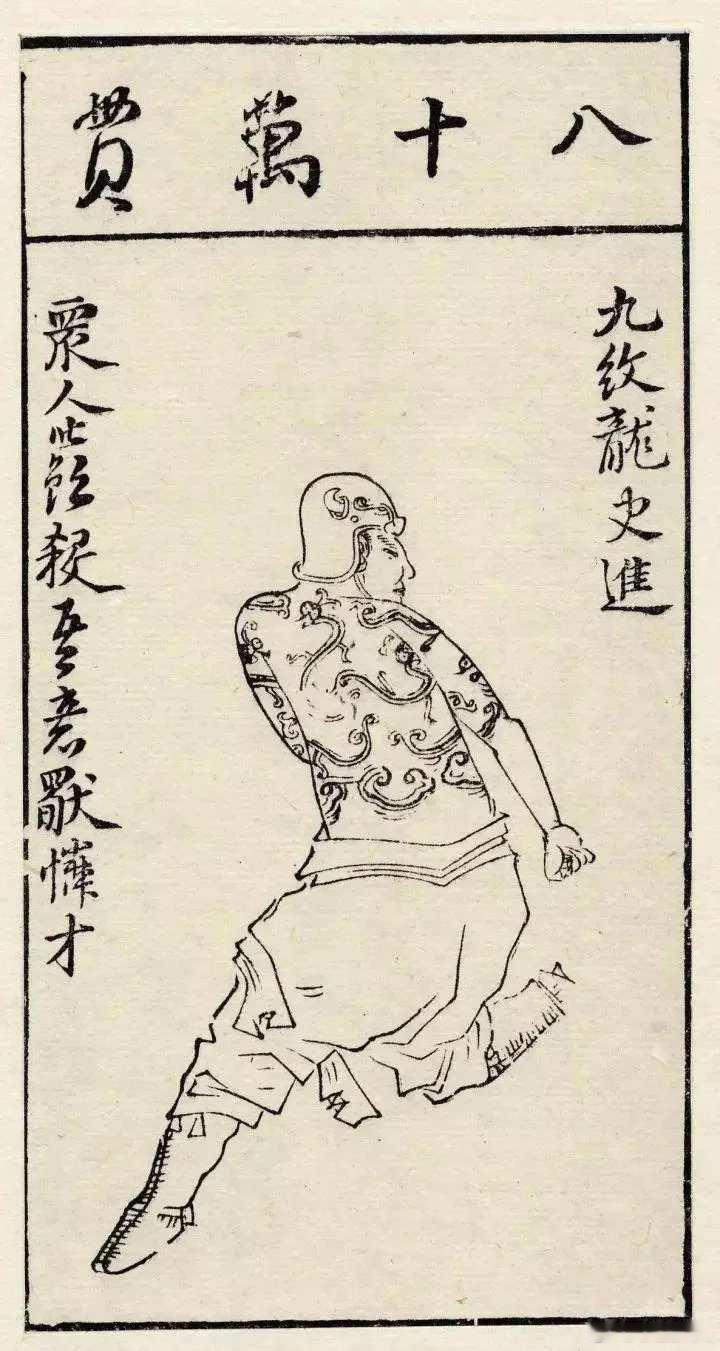 八十萬貫
九紋龍史進
眾人皆欲殺吾意獨憐才